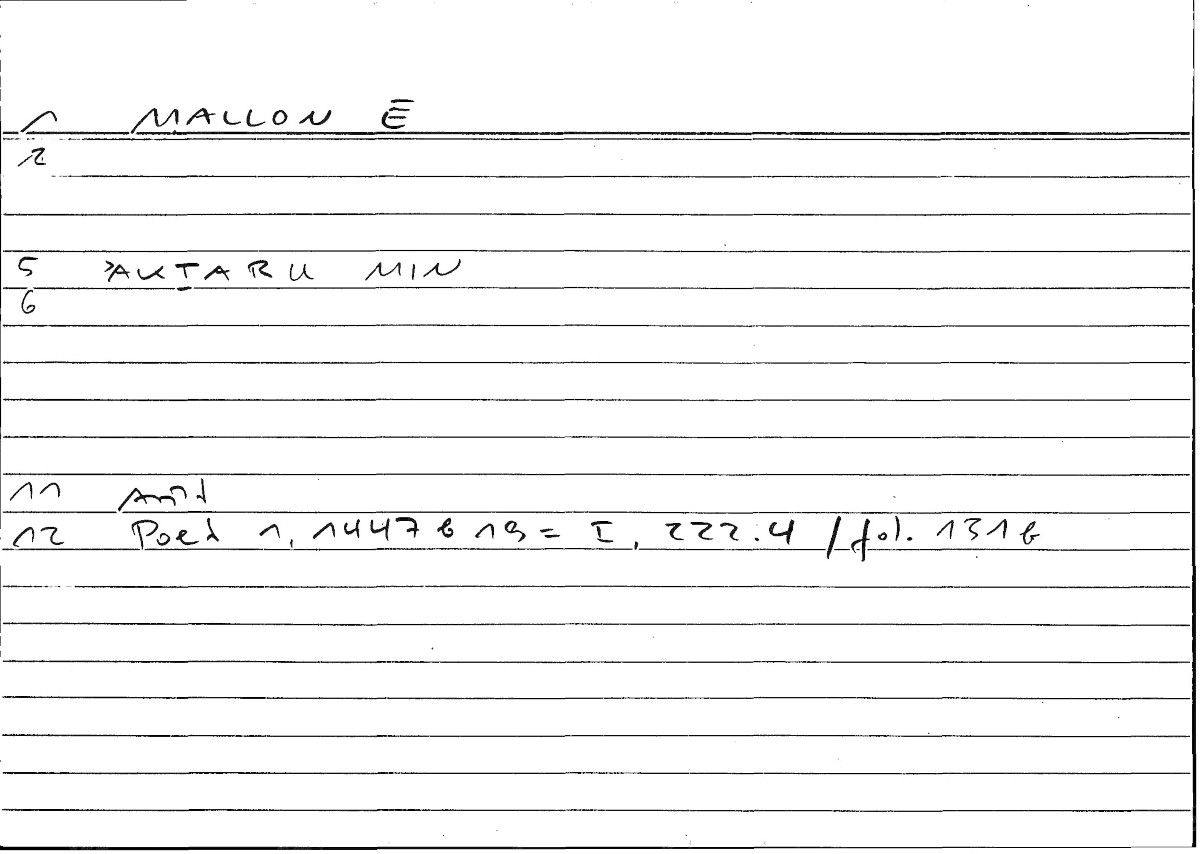 1 MALLON Ē
2
5 ʾAKṮARU MIN
6
11 Arist
12 Poet 1, 1447 b 19 = I, 222.4 / fol. 131 b